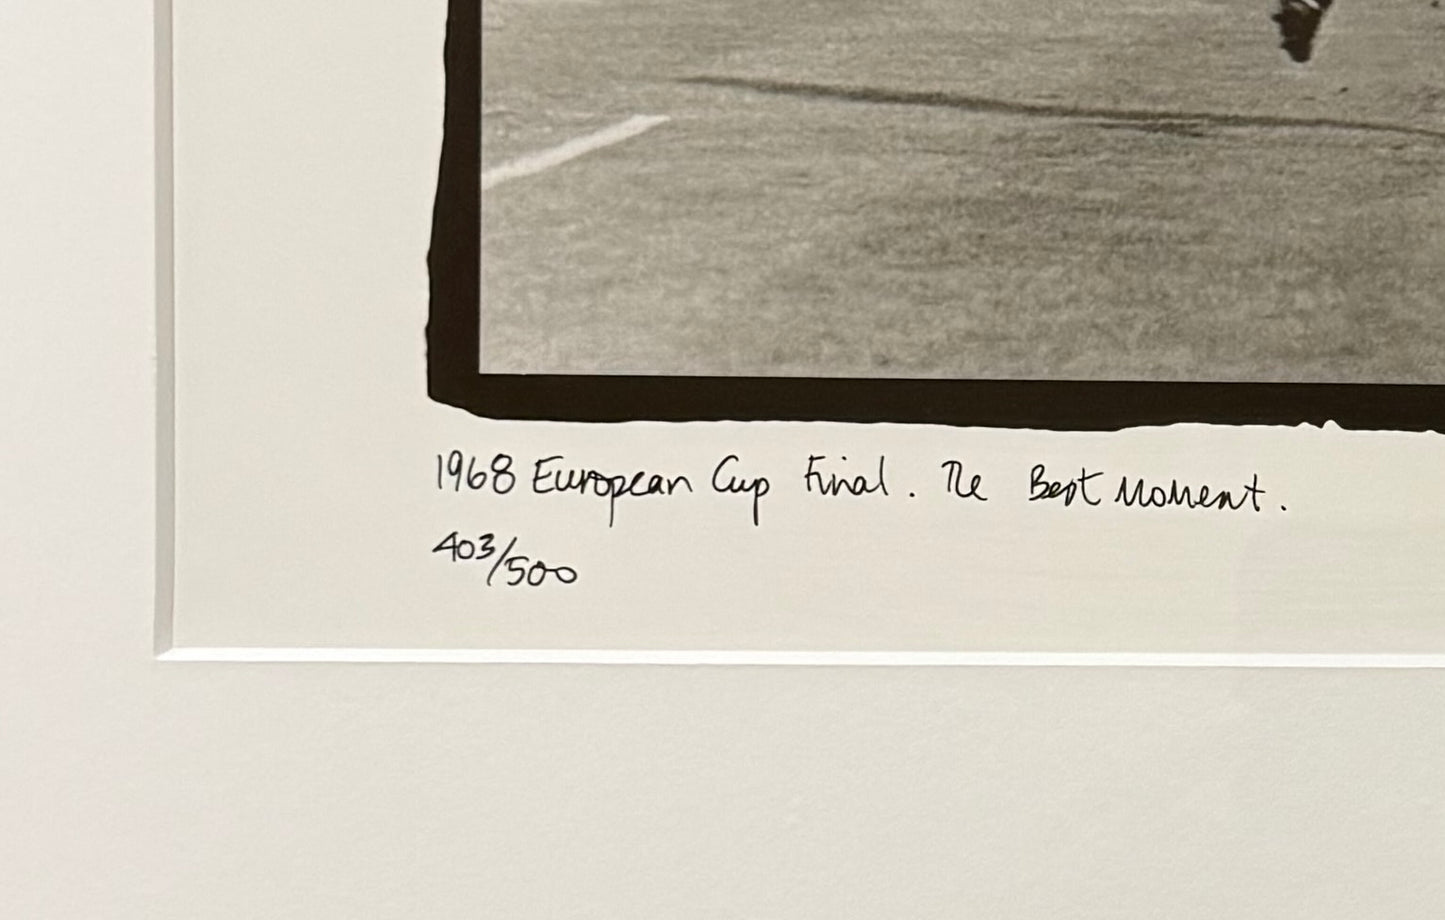 1968 European Cup Final. The Best Moment.
403/500